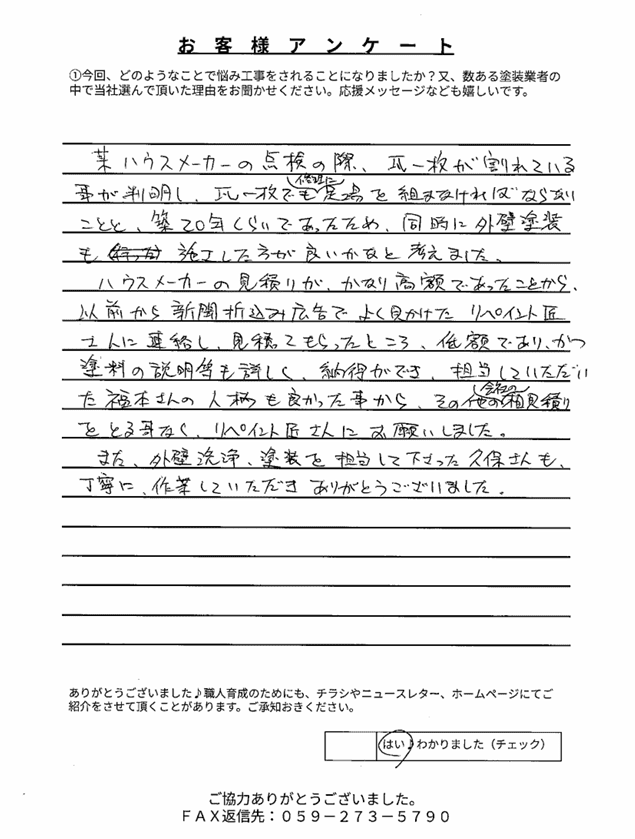 お客様アンケート
①今回、どのようなことで悩み工事をされることになりましたか？又、数ある塗装業者の
中で当社選んで頂いた理由をお聞かせください。応援メッセージなども嬉しいです。
某ハウスメーカーの点検の際、瓦一枚が割れている
修理に
事が判明し、瓦一枚でも足場を組まなければならない
ことと、築20年くらいであったため、同時に外壁塗装
も 施工した方が良いかなと考えました。
ハウスメーカーの見積りが、かなり高額であったことから、
以前から新聞折込み広告でよく見かけたリペイント匠
さんに連絡し、見積てもらったところ、低額であり、かつ
塗料の説明等も詳しく、納得ができ、担当していただい
た福本さんの人柄も良かった事から、その他の相見積り
会社の
をとる事なく、リペイント匠さんにお願いしました。
また、外壁洗浄、塗装を担当して下さった久保さんも、
丁寧に、作業していただきありがとうございました。
ありがとうございました♪職人育成のためにも、チラシやニュースレター、ホームページにてご
紹介をさせて頂くことがあります。ご承知おきください。
はい♪わかりました（チェック）
ご協力ありがとうございました。
ＦＡＸ返信先：０５９－２７３－５７９０